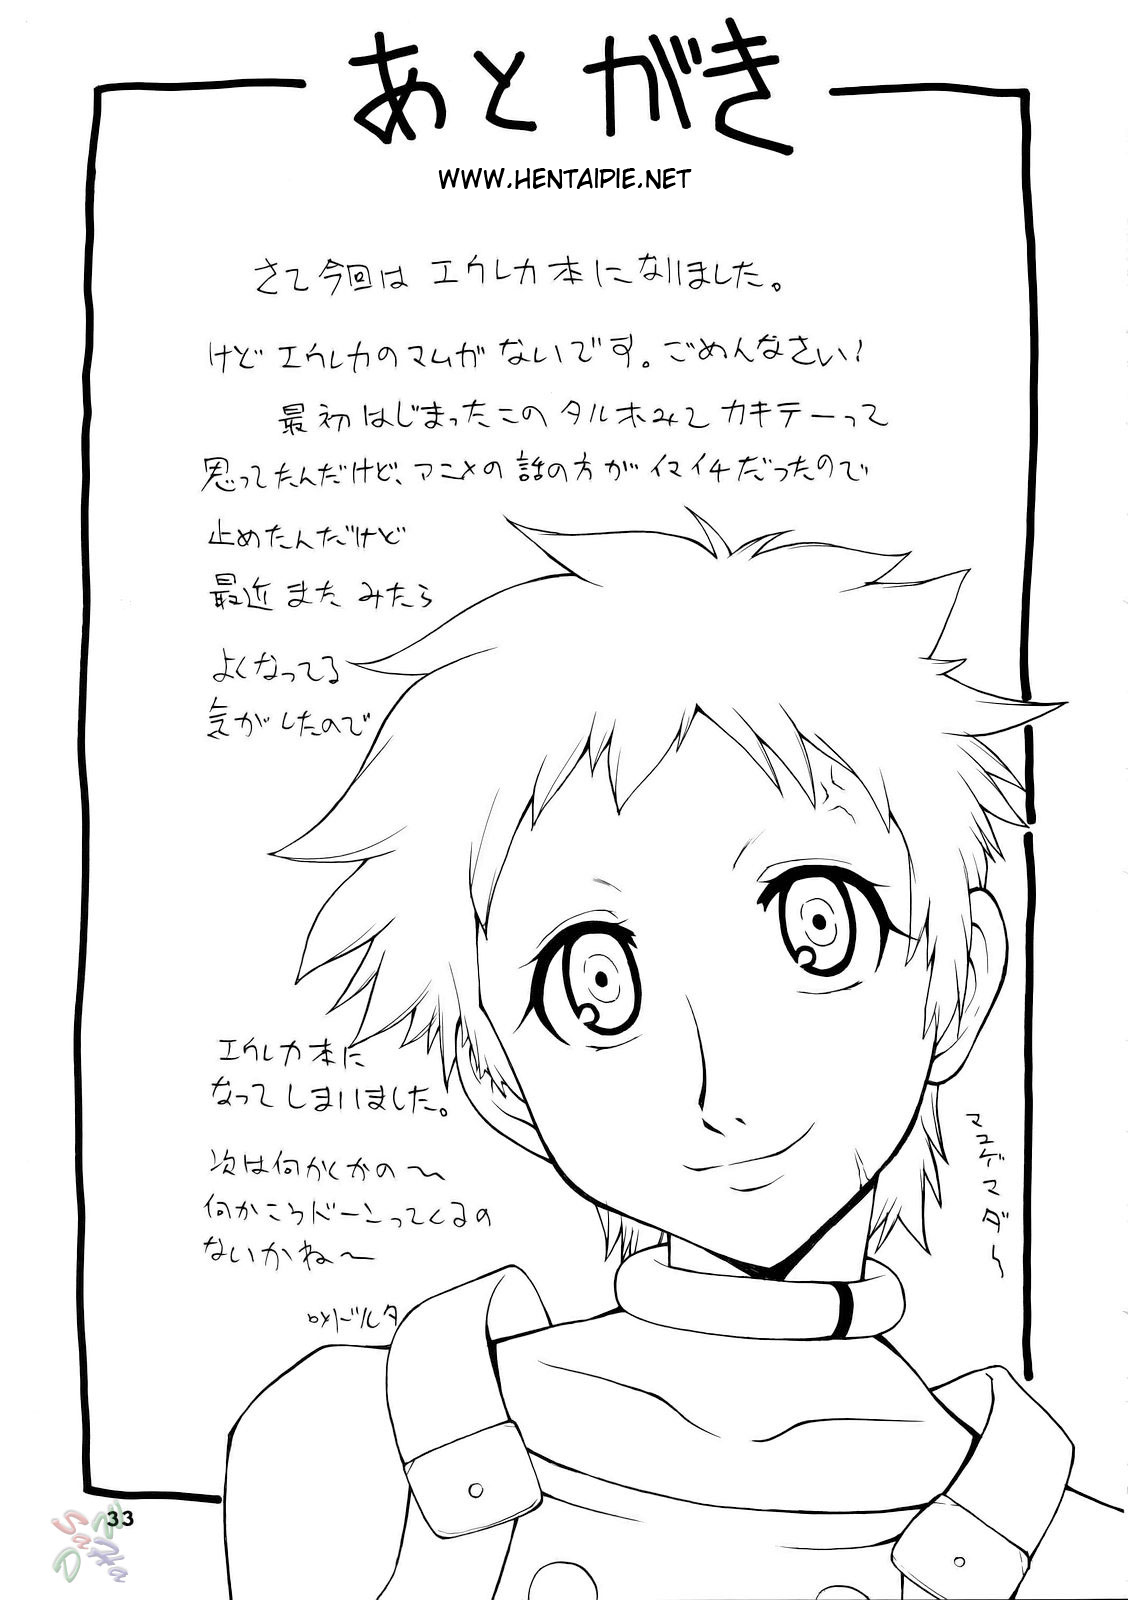 あとがき
WWW.HENTAIPIE.NET
さて今回は エウレカ本になりました。
けど エウレカのマムガ ないです。ごめんなさい!
最初はじまったこの タルホみて カキテーって
思ってたんだけど、アニメの 話の方が イマイチだったので
止めたんだけど
最近 また みたら
よくなってる
気がしたので
エウレカ本に
なってしまいました。
次は何かくかの〜
何かこうドーンってくるの
ないかね〜
マユゲマダ〜
33